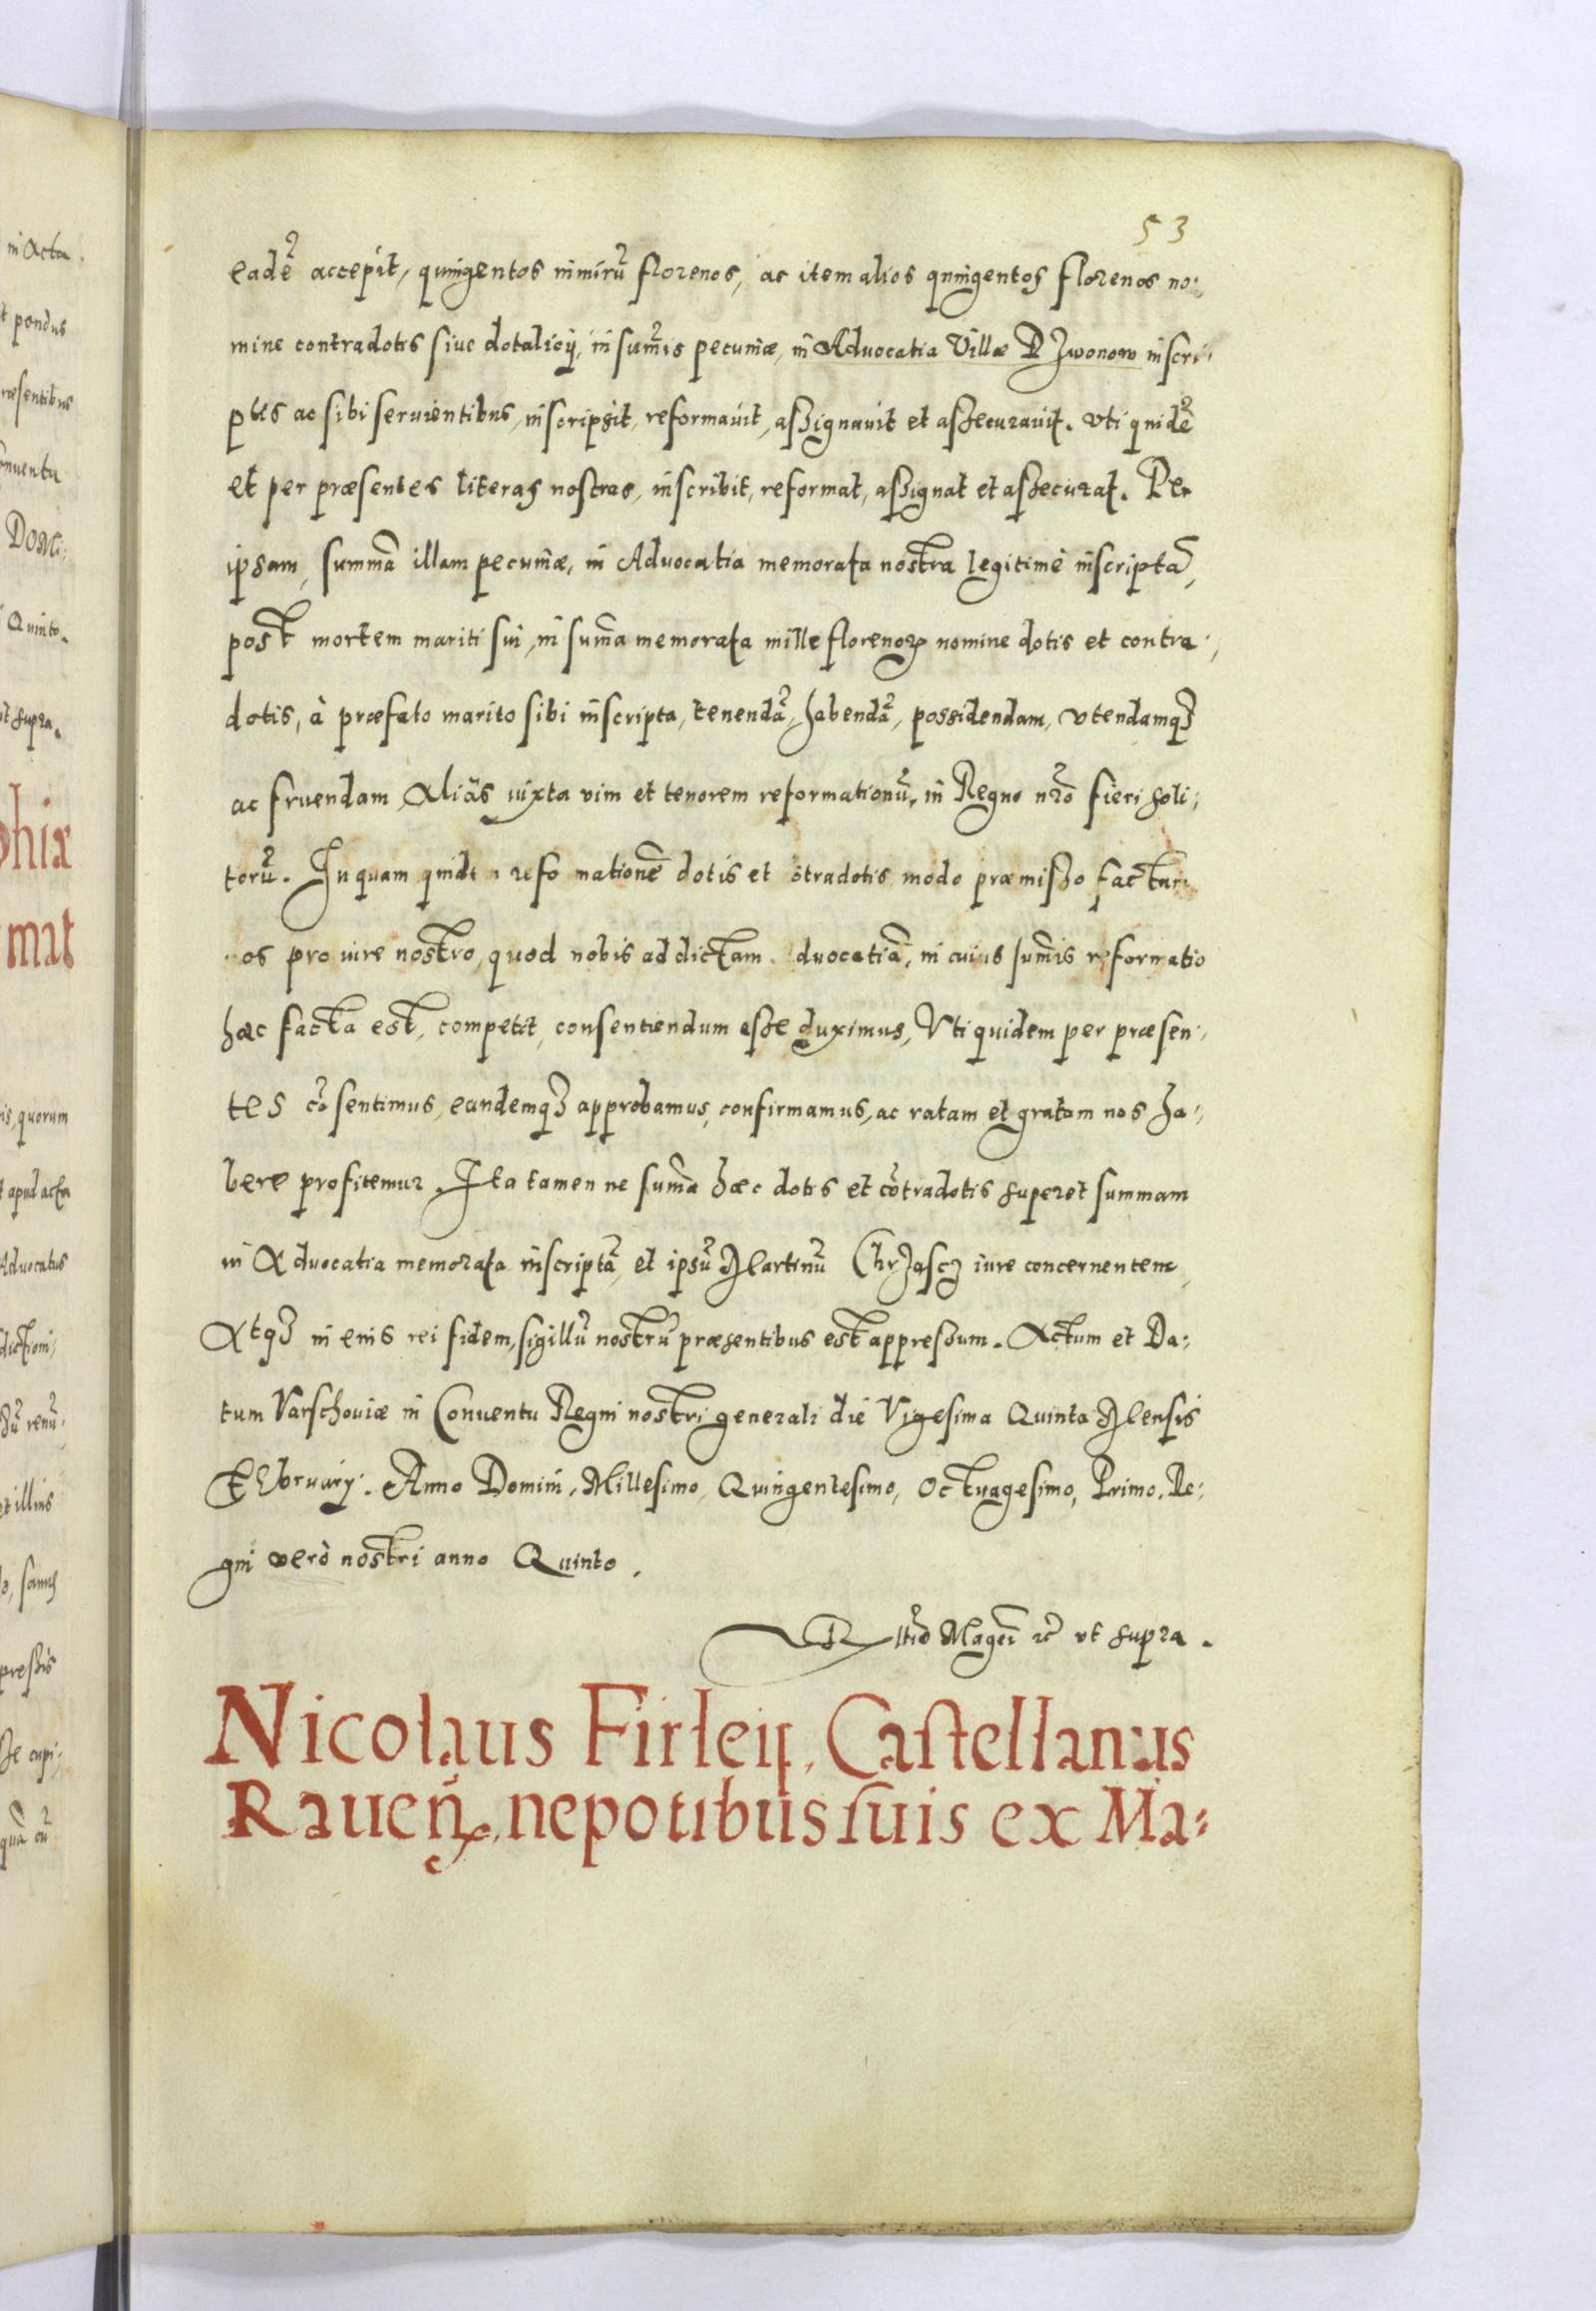 53
eadē accepit, quingentos nimirū florenos, ac item alios quingentos florenos no:
mine contradotis siue dotalicij, in sum̄is pecuniæ, in Aduocatia Villæ Dzwonow inscri:
ptis ac sibi seruientibus, inscripsit, reformauit, assignauit et assecurauit. Vti quidē
et per præsentes literas nostras, inscribit, reformat, assignat et assecurat. Per
ipsam, summā illam pecuniæ, in Aduocatia memorata nostra legitimè inscriptā,
post mortem mariti sui, in sum̄a memorata mille florenoꝝ nomine dotis et contra:
dotis, à præfato marito sibi inscripta, tenendā, habendā, possidendam, vtendamqꝫ
ac fruendam Aliàs iuxta vim et tenorem reformationū, in Regno nr̄o fieri soli:
torū. In quam quidem reformationē dotis et cōtradotis modo præmisso factam
nos pro iure nostro, quod nobis ad dictam Aduocatiā, in cuius sum̄is reformatio
hæc facta est, competit, consentiendum esse duximus, Vti quidem per præsen:
tes cōsentimus, eandemqꝫ approbamus, confirmamus, ac ratam et gratam nos ha:
bere profitemur. Ita tamen ne sum̄a hæc dotis et cōtradotis superet summam
in Aduocatia memorata inscriptā, et ipsū Martinū Chrzascz iure concernentem,
Atqꝫ in eius rei fidem, sigillū nostrū præsentibus est appressum. Actum et Da:
tum Varschouiæ in Conuentu Regni nostri generali die Vigesima Quinta Mensis
February. Anno Domini, Millesimo, Quingentesimo, Octuagesimo, Primo, Re:
gni verò nostri anno Quinto.
Rltio Magci ꝛc̄ vt supra.
Nicolaus Firleij, Castellanus
Raueñ, nepotibus suis ex Ma:
in Acta.
t pondus
ræsentibus
onuentu
DOMi:
Quinto.
vt supra.
phiæ
mat
is, quorum
t apud acta
Aduocatus
dictioni:
renū:
et illius
pressis
se cupi: